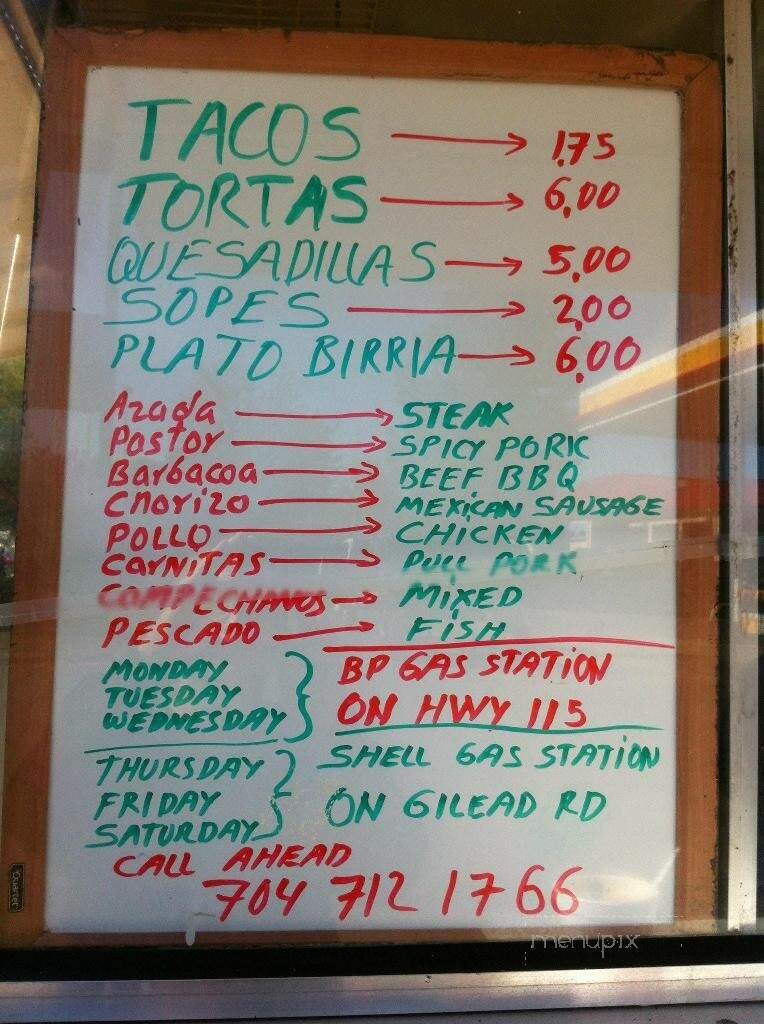 TACOS → 1,75
TORTAS → 6,00
QUESADILLAS → 5,00
SOPES → 2,00
PLATO BIRRIA → 6,00
Azada → STEAK
Pastor → SPICY PORK
Barbacoa → BEEF BBQ
Chorizo → MEXICAN SAUSAGE
POLLO → CHICKEN
CARNITAS → PULL PORK
CAMPECHANOS → MIXED
PESCADO → FISH
MONDAY
TUESDAY
WEDNESDAY
BP GAS STATION
ON HWY 115
THURSDAY
FRIDAY
SATURDAY
SHELL GAS STATION
ON GILEAD RD
CALL AHEAD
704 712 1766
Quartet
menupix